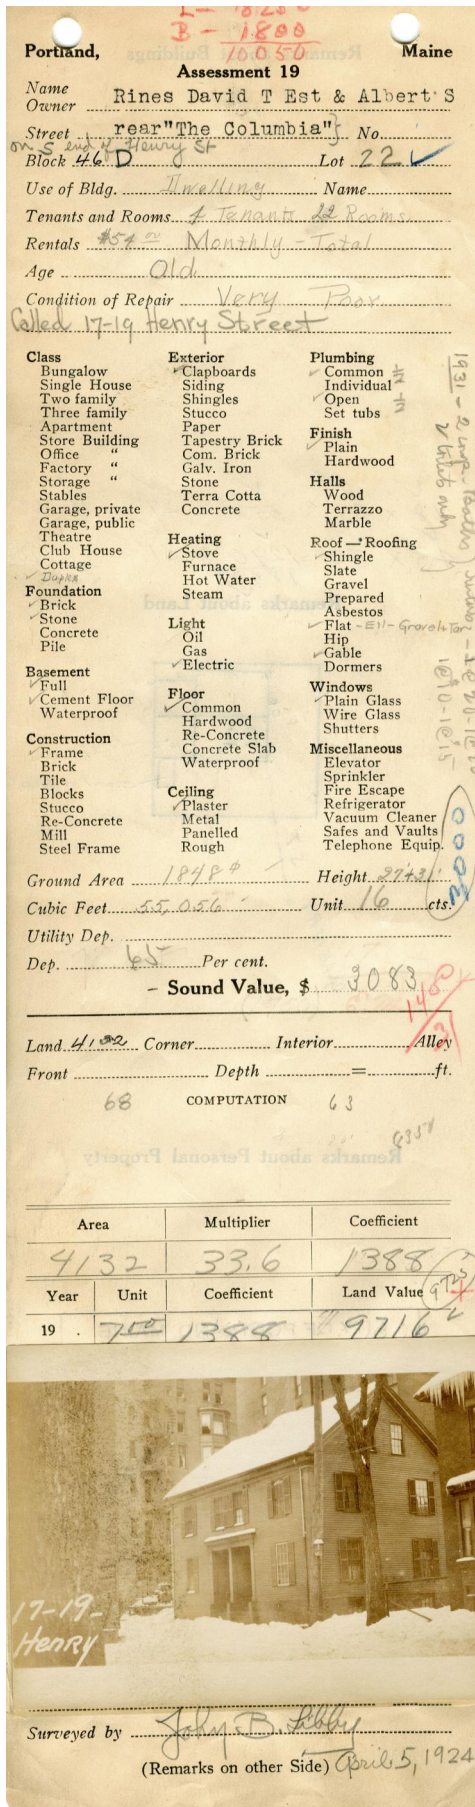 B - 1800
10050
Portland, Maine
Assessment 19
Name
Owner Rines David T Est & Albert S
Street rear "The Columbia" } No.
on S end of Henry St
Block 46 D Lot 22
Use of Bldg. Dwelling Name
Tenants and Rooms 4 Tenants 22 Rooms.
Rentals $54 00 Monthly - Total
Age Old
Condition of Repair Very Poor
Called 17-19 Henry Street
Class
Bungalow
Single House
Two family
Three family
Apartment
Store Building
Office "
Factory "
Storage "
Stables
Garage, private
Garage, public
Theatre
Club House
Cottage
✓ Duplex
Foundation
✓ Brick
✓ Stone
Concrete
Pile
Basement
✓ Full
✓ Cement Floor
Waterproof
Construction
✓ Frame
Brick
Tile
Blocks
Stucco
Re-Concrete
Mill
Steel Frame
Exterior
✓ Clapboards
Siding
Shingles
Stucco
Paper
Tapestry Brick
Com. Brick
Galv. Iron
Stone
Terra Cotta
Concrete
Heating
✓ Stove
Furnace
Hot Water
Steam
Light
Oil
Gas
✓ Electric
Floor
✓ Common
Hardwood
Re-Concrete
Concrete Slab
Waterproof
Ceiling
✓ Plaster
Metal
Panelled
Rough
Plumbing
✓ Common 1/2
Individual
✓ Open 1/2
Set tubs
Finish
✓ Plain
Hardwood
Halls
Wood
Terrazzo
Marble
Roof — Roofing
✓ Shingle
Slate
Gravel
Prepared
Asbestos
✓ Flat - Ell - Gravel + Tar
Hip
✓ Gable
Dormers
Windows
✓ Plain Glass
Wire Glass
Shutters
Miscellaneous
Elevator
Sprinkler
Fire Escape
Refrigerator
Vacuum Cleaner
Safes and Vaults
Telephone Equip.
2 toilets only
1@10-1@15
3000
Ground Area 1848 Height
Cubic Feet 55,056 Unit 16 cts.
Utility Dep.
Dep. 65 Per cent.
- Sound Value, $ 3083
Land 4132 Corner Interior Alley
Front Depth = ft.
68 COMPUTATION 63
Area Multiplier Coefficient
4132 33.6 1388
Year Unit Coefficient Land Value
19 . 7 00 1388 9716
17-19-
Henry
Surveyed by John B. Libby
(Remarks on other Side) April 5, 1924